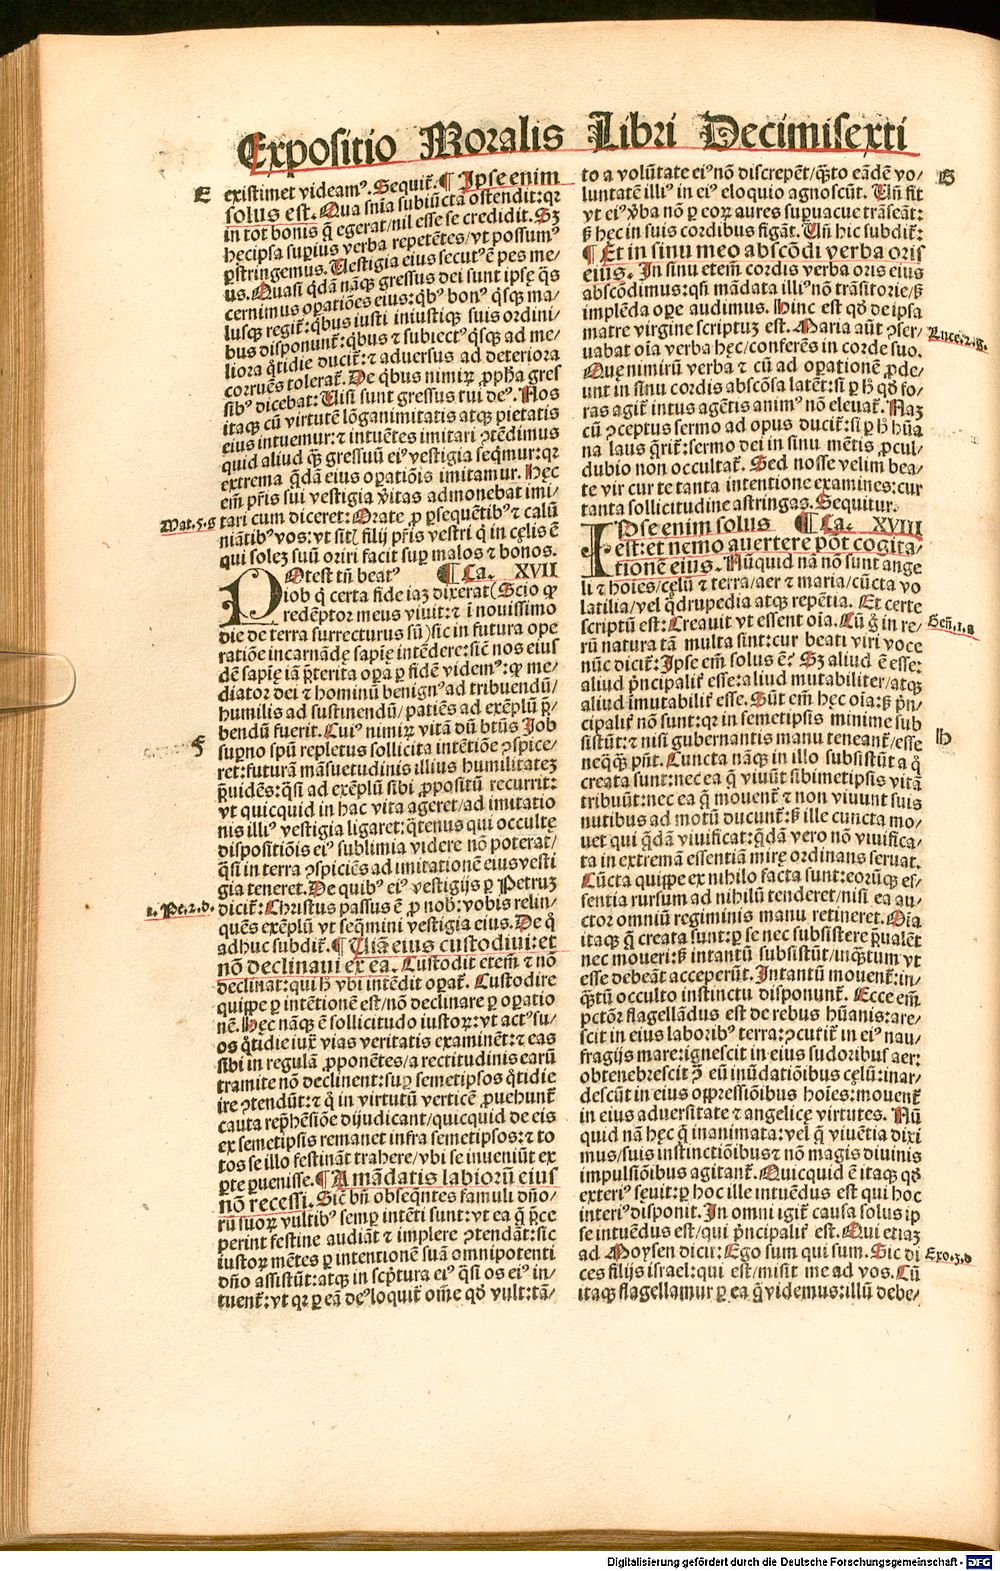 Expositio Moralis Libri Decimisexti
E
existimet videamꝰ. Sequit̃. ¶ Ipse enim
solus est. Qua sn̄ia subiūcta ostendit: qꝛ
in tot bonis q̄ egerat/ nil esse se credidit. Sꝫ
hęc ipsa supius verba repetētes/ vt possumꝰ
ꝑstringemus. Uestigia eius secutꝰ ē pes me⸗
us. Quasi q̄dā nāqꝫ gressus dei sunt ipsę q̄s
cernimus oꝑatiōes eius: qͥbꝰ bonꝰ qͥsqꝫ ma⸗
lusqꝫ regit̃: qͥbus iusti iniustiqꝫ suis ordini⸗
bus disponunt̃: qͥbus ⁊ subiectꝰ qͥsqꝫ ad me⸗
liora qͦtidie ducit̃: ⁊ aduersus ad deteriora
corruēs tolerat̃. De qͥbus nimiꝝ ꝓpħa gres
sibꝰ dicebat: Uisi sunt gressus tui deꝰ. Nos
itaqꝫ cū virtutē lōganimitatis atqꝫ pietatis
eius intuemur: ⁊ intuētes imitari ꝯtēdimus
quid aliud qͣꝫ gressuū eiꝰ vestigia seqͥmur: qꝛ
extrema q̄dā eius oꝑatiōis imitamur. Hęc
em̄ pr̄is sui vestigia v̄itas admonebat imi⸗
Mat. 5. g
tari cum diceret: Orate ꝓ ꝑsequētibꝰ ⁊ calū
niātibꝰ vos: vt sitꝭ filij pr̄is vestri qͥ in cęlis ē
qui soleꝫ suū oriri facit suꝑ malos ⁊ bonos.
POtest tn̄ beatꝰ ¶ Ca. XVII
iob qͥ certa fide iaꝫ dixerat (Scio qꝫ
redēptor meus viuit: ⁊ ī nouissimo
die de terra surrecturus sū) sic in futura ope
ratiōe incarnādę sapię intēdere: sic̄ nos eius
dē sapię iā p̄terita oꝑa ꝑ fidē videmꝰ: qꝫ me⸗
diatoꝛ dei ⁊ hominū benignꝰ ad tribuendū/
humilis ad sustinendū/ patiēs ad exēplū p̄⸗
bendū fuerit. Cuiꝰ nimiꝝ vitā dū btūs Job
F
suꝑno spū repletus sollicita intētiōe ꝯspice⸗
ret: futurā māsuetudinis illius humilitateꝫ
p̄uidēs: qͣsi ad exēplū sibi ꝓpositū recurrit:
vt quicquid in hac vita ageret/ ad imitatio
nis illiꝰ vestigia ligaret: qͣtenus qui occultę
dispositiōis eiꝰ sublimia videre nō poterat/
qͣsi in terra ꝯspiciēs ad imitationē eius vesti
gia teneret. De quibꝰ eiꝰ vestigijs ꝑ Petruꝫ
1. Pe. 2. d.
dicit̃: Christus passus ē ꝓ nob̄: vobis relin⸗
quēs exēplū vt seqͣmini vestigia eius. De qͦ
adhuc subdit̃. ¶ Uiā eius custodiui: et
nō declinaui ex ea. Custodit etem̄ ⁊ nō
declinat: qui ħ vbi intēdit oꝑat̃. Custodire
quippe ꝑ intētionē est/ nō declinare ꝑ oꝑatio
nē. Hęc nāqꝫ ē sollicitudo iustoꝝ: vt actꝰ su⸗
os qͦtidie iux̄ vias veritatis examinēt: ⁊ eas
sibi in regulā ꝓponētes/ a rectitudinis earū
tramite nō declinent: suꝑ semetipsos qͦtidie
ire ꝯtendūt: ⁊ qͥ in virtutū verticē ꝓuehunt̃
cauta rep̄hēsiōe dijudicant/ quicquid de eis
ex semetipsis remanet infra semetipsos: ⁊ to
tos se illo festināt trahere/ vbi se inueniūt ex
ꝑte ꝑuenisse. ¶ A mādatis labioꝛū eius
nō recessi. Sic̄ bn̄ obseqn̄tes famuli dn̄o⸗
rū suoꝝ vultibꝰ semꝑ intēti sunt: vt ea q̄ p̄ce
perint festine audiāt ⁊ implere ꝯtendāt: sic
iustoꝝ mētes ꝑ intentionē suā omnipotenti
dn̄o assistūt: atqꝫ in scp̄tura eiꝰ qͣsi os eiꝰ in⸗
tuent̃: vt qꝛ ꝑ eā deꝰ loquit̃ om̄e qd̄ vult: tā⸗
G
to a volūtate eiꝰ nō discrepēt/ qͣꝫto eādē vo⸗
luntatē illiꝰ in eiꝰ eloquio agnoscūt. Un̄ fit
vt eiꝰ v̄ba nō ꝑ eoꝝ aures suꝑuacue trāseāt:
ß hęc in suis cordibus figāt. Un̄ hic subdit̃:
¶ Et in sinu meo abscōdi verba oris
eius. In sinu etem̄ cordis verba oris eius
abscōdimus: qn̄ mādata illiꝰ nō trāsitorie/ ß
implēda oꝑe audimus. Hinc est qd̄ de ipsa
matre virgine scriptuꝫ est. Maria aūt ꝯser⸗
Luce. 2. g.
uabat oīa verba hęc/ conferēs in corde suo.
Que nimirū verba ⁊ cū ad oꝑationē ꝓde⸗
unt in sinu cordis abscōsa latēt: si ꝑ ħ qd̄ fo⸗
ras agit̃ intus agētis animꝰ nō eleuat̃. Naꝫ
cū ꝯceptus sermo ad opus ducit̃: si ꝑ ħ hūa
na laus q̄rit̃: sermo dei in sinu mētis ꝓcul⸗
dubio non occultat̃. Sed nosse velim bea⸗
te vir cur te tanta intentione examines: cur
tanta sollicitudine astringas. Sequitur.
IPse enim solus ¶ Ca. XVIII
est: et nemo auertere pōt cogita⸗
tionē eius. Nūquid nā nō sunt ange
li ⁊ hoīes/ cęlū ⁊ terra/ aer ⁊ maria/ cūcta vo
latilia/ vel q̄drupedia atqꝫ repētia. Et certe
scriptū est: Creauit vt essent oīa. Cū gͦ in re⸗
Gen̄. 1. g
rū natura tā multa sint: cur beati viri voce
nūc dicit̃: Ipse em̄ solus ē? Sꝫ aliud ē esse:
aliud p̄ncipalit̃ esse: aliud mutabiliter/ atqꝫ
aliud īmutabilit̃ esse. Sūt em̄ hęc oīa: ß p̄n⸗
cipalit̃ nō sunt: qꝛ in semetipsis minime sub
H
sistūt: ⁊ nisi gubernantis manu teneant̃/ esse
neqͣqͣꝫ pn̄t. Cuncta nāqꝫ in illo subsistūt a qͦ
creata sunt: nec ea q̄ viuūt sibimetipsis vitā
tribuūt: nec ea q̄ mouent̃ ⁊ non viuunt suis
nutibus ad motū ducunt̃: ß ille cuncta mo⸗
uet qui q̄dā viuificat: q̄dā vero nō viuifica⸗
ta in extremā essentiā mirę ordinans seruat.
Cūcta quippe ex nihilo facta sunt: eorūqꝫ es⸗
sentia rursum ad nihilū tenderet/ nisi ea au⸗
ctor omniū regiminis manu retineret. Oīa
itaqꝫ q̄ creata sunt: ꝑ se nec subsistere p̄ualēt
nec moueri: ß intantū subsistūt/ inqͣꝫtum vt
esse debeāt acceperūt. Intantū mouent̃: in⸗
qͣꝫtū occulto instinctu disponunt̃. Ecce em̄
pctōr flagellādus est de rebus hūanis: are⸗
scit in eius laboribꝰ terra: ꝯcutit̃ in eiꝰ nau⸗
fragijs mare: ignescit in eius sudoribus aer:
obtenebrescit ꝯ̄ eū inūdatiōibus cęlū: inar⸗
descūt in eius oppressiōibus hoīes: mouent̃
in eius aduersitate ⁊ angelicę virtutes. Nū
quid nā hęc q̄ inanimata: vel q̄ viuētia dixi
mus/ suis instinctiōibus ⁊ nō magis diuinis
impulsiōibus agitant̃. Quicquid ē itaqꝫ qd̄
exteriꝰ seuit: ꝑ hoc ille intuēdus est qui hoc
interiꝰ disponit. In omni igit̃ causa solus ip
se intuēdus est/ qui p̄ncipalit̃ est. Qui etiaꝫ
ad Moysen dicit: Ego sum qui sum. Sic di
Exo. 3. d
ces filijs israel: qui est/ misit me ad vos. Cū
itaqꝫ flagellamur ꝑ ea q̄ videmus: illū debe⸗
Digitalisierung gefördert durch die Deutsche Forschungsgemeinschaft - DFG